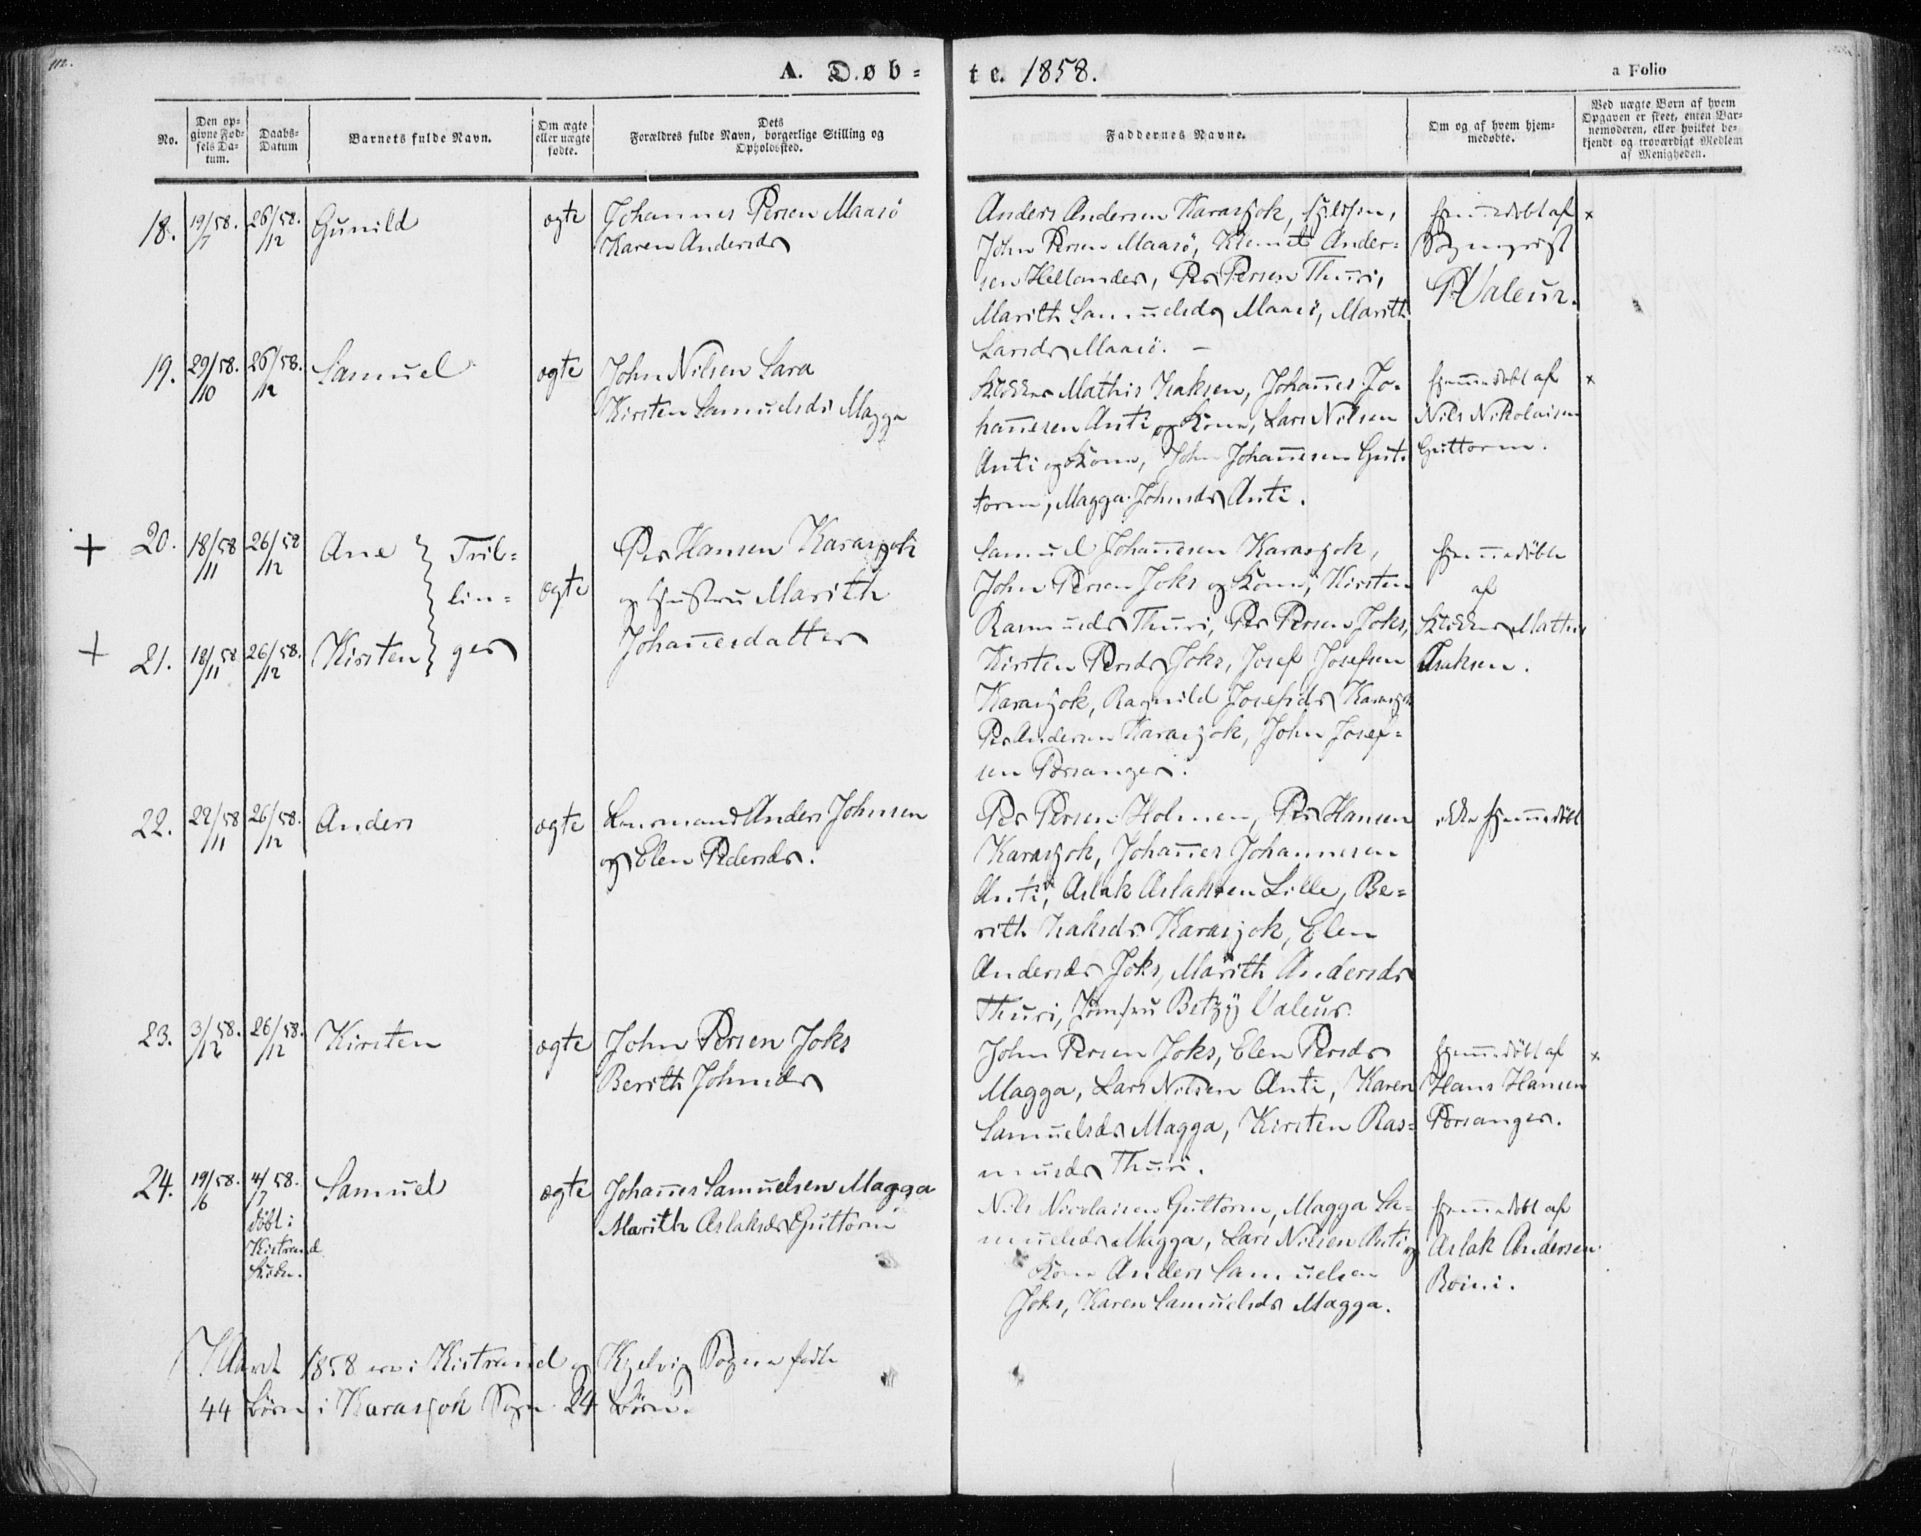 112.
A. Døb-te. 1858.
a Folio
No.
Den op-
givne Fød-
sels Da-
tum.
Daabs-
Datum
Barnets fulde Navn.
Om ægte
eller uægte
fødte.
Dets
Forældres fulde Navn, borgerlige Stilling og
Opholdssted.
Faddernes Navne.
Om og af hvem hjem-
medøbte.
Ved uægte Børn af hvem
Opgaven er skeet, enten Bar-
nemoderen, eller hvilket be-
kjendt og troværdigt Medlem
af Menigheden.
18. 19/7 58. 26/12 58. Gunild ægte
Johannes Persen Maasø
Karen Andersdr
Anders Andersen Karasjok,
John Persen Maasø, Klemet Ander-
sen Hellander, Per Persen Thuri,
Marith Samuelsdr Maasø, Marith
Larsdr Maasø. –
hjemmedøbt af ×
Sognepræst
PValeur.
19. 29/10 58. 26/12 58. Samuel ægte
John Nilsen Sara
Kirsten Samuelsdr Magga
Klokker Mathis Isaksen, Johan̄es Jo-
han̄esen Anti og Kone, Lars Nilsen
Anti og Kone, John Johan̄esen Gut-
torm, Magga Johnsdr Anti.
hjem̄edøbt af ×
Nils Nikolaisen
Guttorm.
+ 20. 18/11 58 26/12 58 Ane } Tril-
lin-
ægte
+ 21. 18/11 58 26/12 58. Kirsten } ger
Per Hansen Karasjok
og Hustru Marith
Johan̄esdatter
Samuel Johan̄esen Karasjok,
John Persen Joks og Kone, Kirsten
Rasmusdr Thuri, Per Persen Joks,
Kirsten Persdr Joks, Josef Josefsen
Karasjok, Ragnild Josefsdr Karasjok
Per Andersen Karasjok, John Josef-
sen Porsanger.
hjem̄edøbte
af
Klokker Mathis
Isaksen.
22. 22/11 58 26/12 58. Anders ægte
Lensmand Anders Johnsen
og Elen Pedersdr.
Per Persen Holmen, Per Hansen
Karasjok, Johan̄es Johannesen
Anti, Aslak Aslaksen Lille, Be-
rith Isaksdr Karasjok, Elen
Andersdr Joks, Marith Andersdr
Thuri, Jomfru Betzy Valeur.
ikke hjem̄edøbt
23. 3/12 58. 26/12 58. Kirsten ægte
John Persen Joks
Berith Johnsdr
John Persen Joks, Elen Persdr
Magga, Lars Nilsen Anti, Karen
Samuelsdr Magga, Kirsten Ras-
musdr Thuri.
hjem̄edøbt af ×
Hans Hansen
Porsanger.
24. 19/6 58. 4/7 58. Samuel ægte
døbt i
Kistrand
Kirke.
Johan̄es Samuelsen Magga
Marith Aslaksdr Guttorm
Nils Nicolaisen Guttorm, Magga Sa-
muelsdr Magga, Lars Nilsen Anti og
Kone Anders Samuelsen
Joks, Karen Samuelsdr Magga.
hjem̄edøbt af
Aslak Andersen
Boini.
I Aaret 1858 ere i Kistrand og Kjelvig Sogne fødte
44 Børn i Karasjok Sogn 24 Børn.